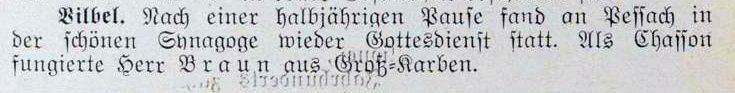 Vilbel. Nach einer halbjährigen Pause fand an Pessach in
der schönen Synagoge wieder Gottesdienst statt. Als Chasson
fungierte Herr Braun aus Groß-Karben.